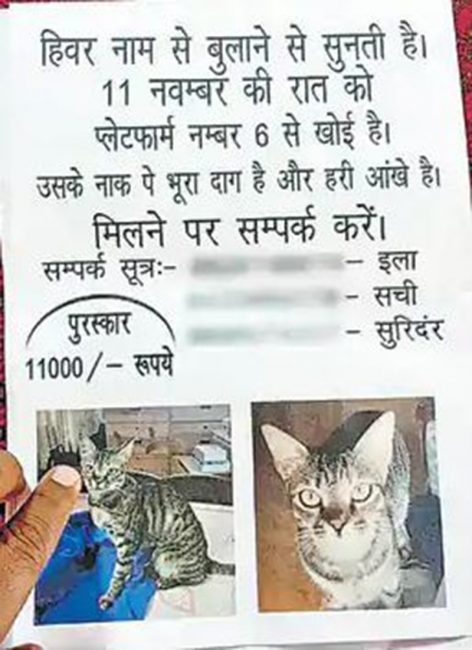 हिवर नाम से बुलाने से सुनती है।
11 नवम्बर की रात को
प्लेटफार्म नम्बर 6 से खोई है।
उसके नाक पे भूरा दाग है और हरी आंखे है।
मिलने पर सम्पर्क करें।
सम्पर्क सूत्रः- – इला
- सची
– सुरिदंर
पुरस्कार
11000/– रूपये